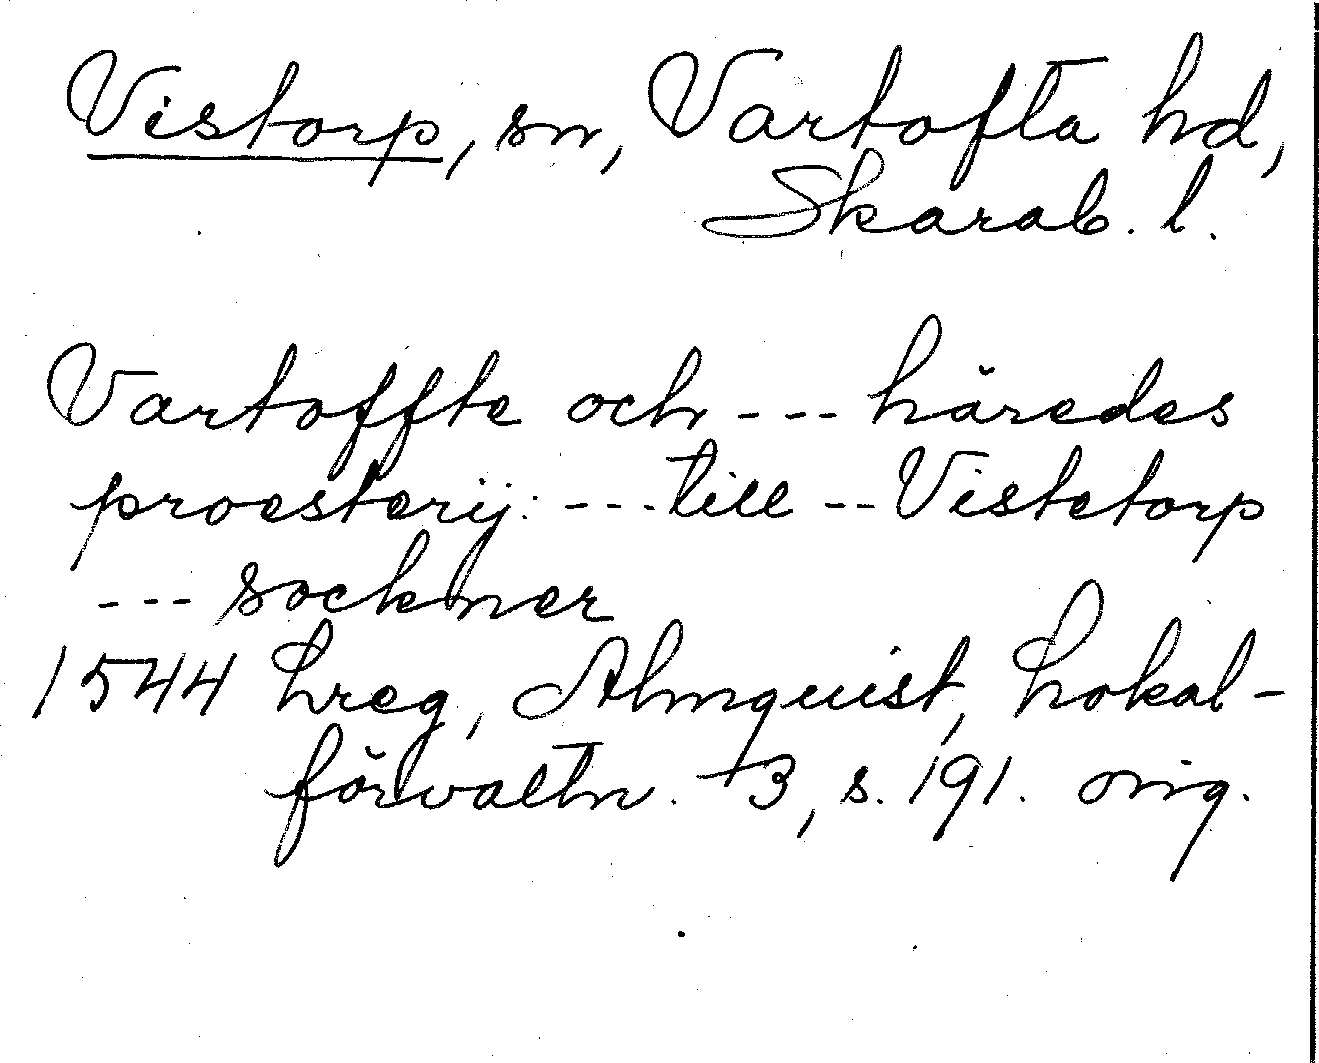 Vistorp, sn, Vartofta hd,
Skarab. l.
Vartoffte och --- häredes
proesterij: --- till -- Vistetorp
--- sockner
1544 Lreg, Almquist, Lokal-
förvaltn. 3, s. 191. orig.